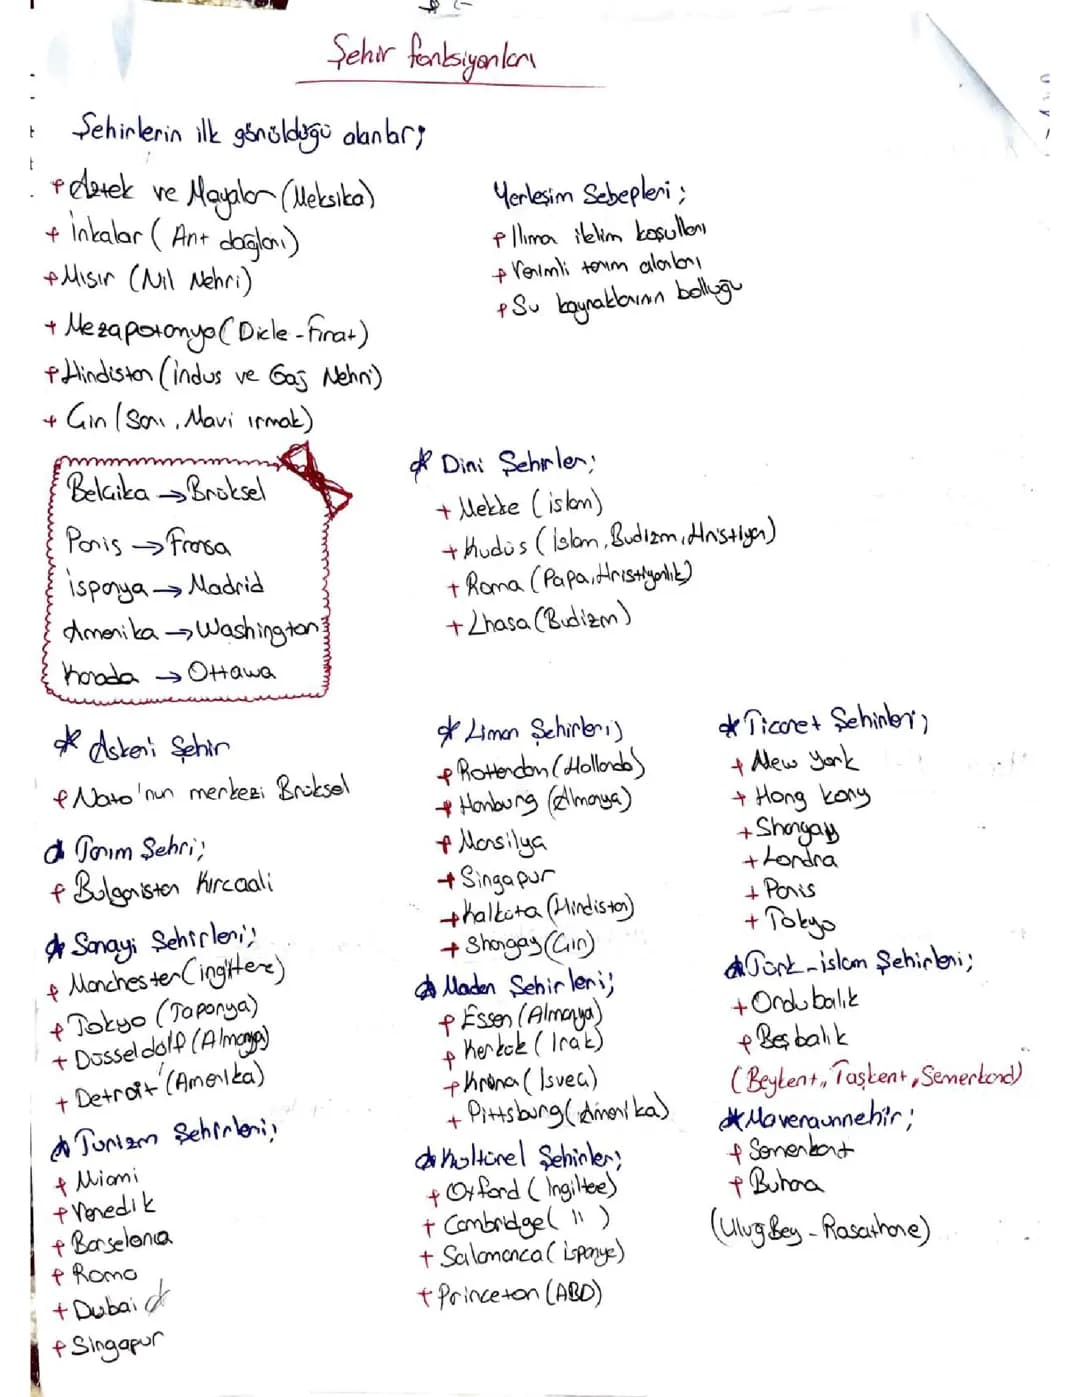 Şehir fonksiyonları
Şehirlerin ilk görüldüğü alanlar;
+ Aztek ve Mayalar (Meksika)
+ İnkalar (Ant dağları)
+ Mısır (Nil Nehri)
+ Mezapotonya (Dicle-Fırat)
+ Hindistan (indus ve Gaj Nehri)
+ Çin (Sarı, Mavi ırmak)
Yerleşim Sebepleri;
+ Ilıman iklim koşulları
+ Verimli tarım alanları
+ Su kaynaklarının bolluğu
Belçika → Brüksel
Paris → Fransa
İspanya → Madrid
Amerika → Washington
Kanada → Ottawa
* Dini Şehirler;
+ Mekke (islam)
+ Kudüs (İslam, Budizm, Hristiyan)
+ Roma (Papa, Hristiyanlık)
+ Lhasa (Budizm)
* Askeri Şehir
+ Nato'nun merkezi Brüksel
* Tarım Şehri;
+ Bulgaristan Kırcaali
* Sanayi Şehirleri;
+ Manchester (ingiltere)
+ Tokyo (Japonya)
+ Düsseldolf (Almanya)
+ Detroit (Amerika)
* Turizm Şehirleri;
+ Miami
+ Venedik
+ Barselona
+ Roma
+ Dubai *
+ Singapur
* Liman Şehirleri;
+ Rotterdan (Hollanda)
+ Hanburg (Almanya)
+ Marsilya
+ Singapur
+ Kalkuta (Hindistan)
+ Shangay (Çin)
* Maden Şehirleri;
+ Essen (Almanya)
+ Kerkük (Irak)
+ Kruna (İsveç)
+ Pittsburg (Amerika)
* Kültürel Şehirler;
+ Oxford (İngiltere)
+ Cambridge ( " )
+ Salamanca (ispanya)
+ Princeton (ABD)
* Ticaret Şehirleri;
+ New York
+ Hong Kong
+ Shangay
+ Londra
+ Paris
+ Tokyo
* Türk-islam Şehirleri;
+ Ordu balık
+ Beş balık
(Beykent, Taşkent, Semerkand)
* Maveraunnehir;
+ Semerkant
+ Buhara
(Uluğ Bey - Rasathane)